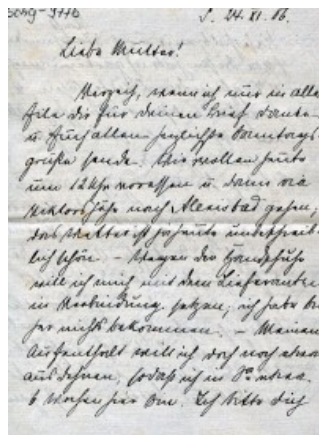 S. 24. XI. 06.
Liebe Mutter!
Verzeih, wenn ich nur in aller
Eile dir für deinen Brief danke
u. Euch allen herzlichste Sonntags
grüße sende. Wir wollen heute
um 12 Uhr voressen u. dann via
Viktorshöhe nach Alexisbad gehen;
das Wetter ist ja heute unbeschreib
lich schön. – Wegen der Handschuhe
will ich mich mit dem Lieferanten
in Verbindung setzen, ich habe
nichts bekommen. – Meinen
Aufenthalt will ich doch noch etwas
ausdehnen, sodaß ich in Sa etwa
6 Wochen hier bin. Ich bitte dich